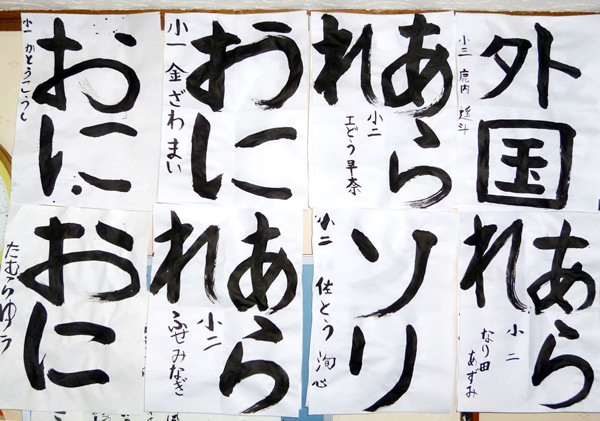 外国
小三 鹿内
あら
れ
小二
工どう早奈
おに
小一 金ざわまい
おに
小一 かとうこうし
あら
れ
小二
なり田
あずみ
ソリ
小二 佐とう 洵心
あら
れ
小二
ふせみなぎ
おに
たむらゆう